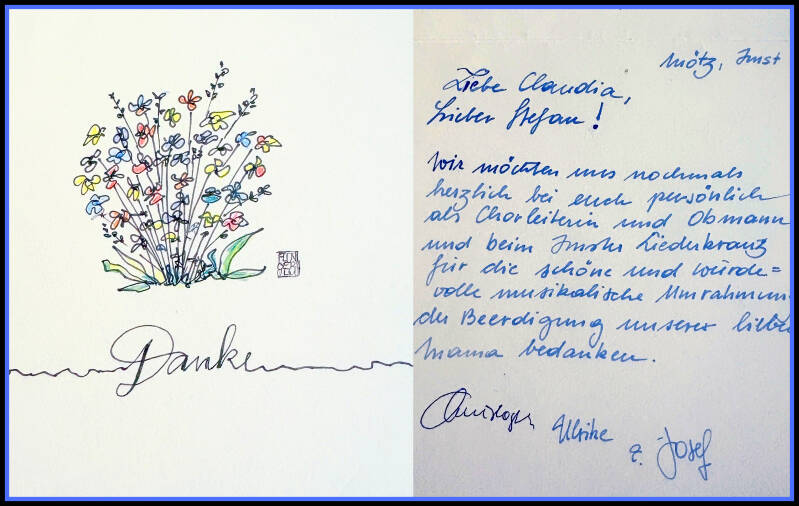 Danke
Mötz, Imst
Liebe Claudia,
Lieber Stefan!
Wir möchten uns nochmals
herzlich bei euch persönlich
als Chorleiterin und Obmann
und beim Imster Liederkranz
für die schöne und würde=
volle musikalische Umrahmun
der Beerdigung unserer liebe
Mama bedanken.
Christoph
Ulrike
e. Josef